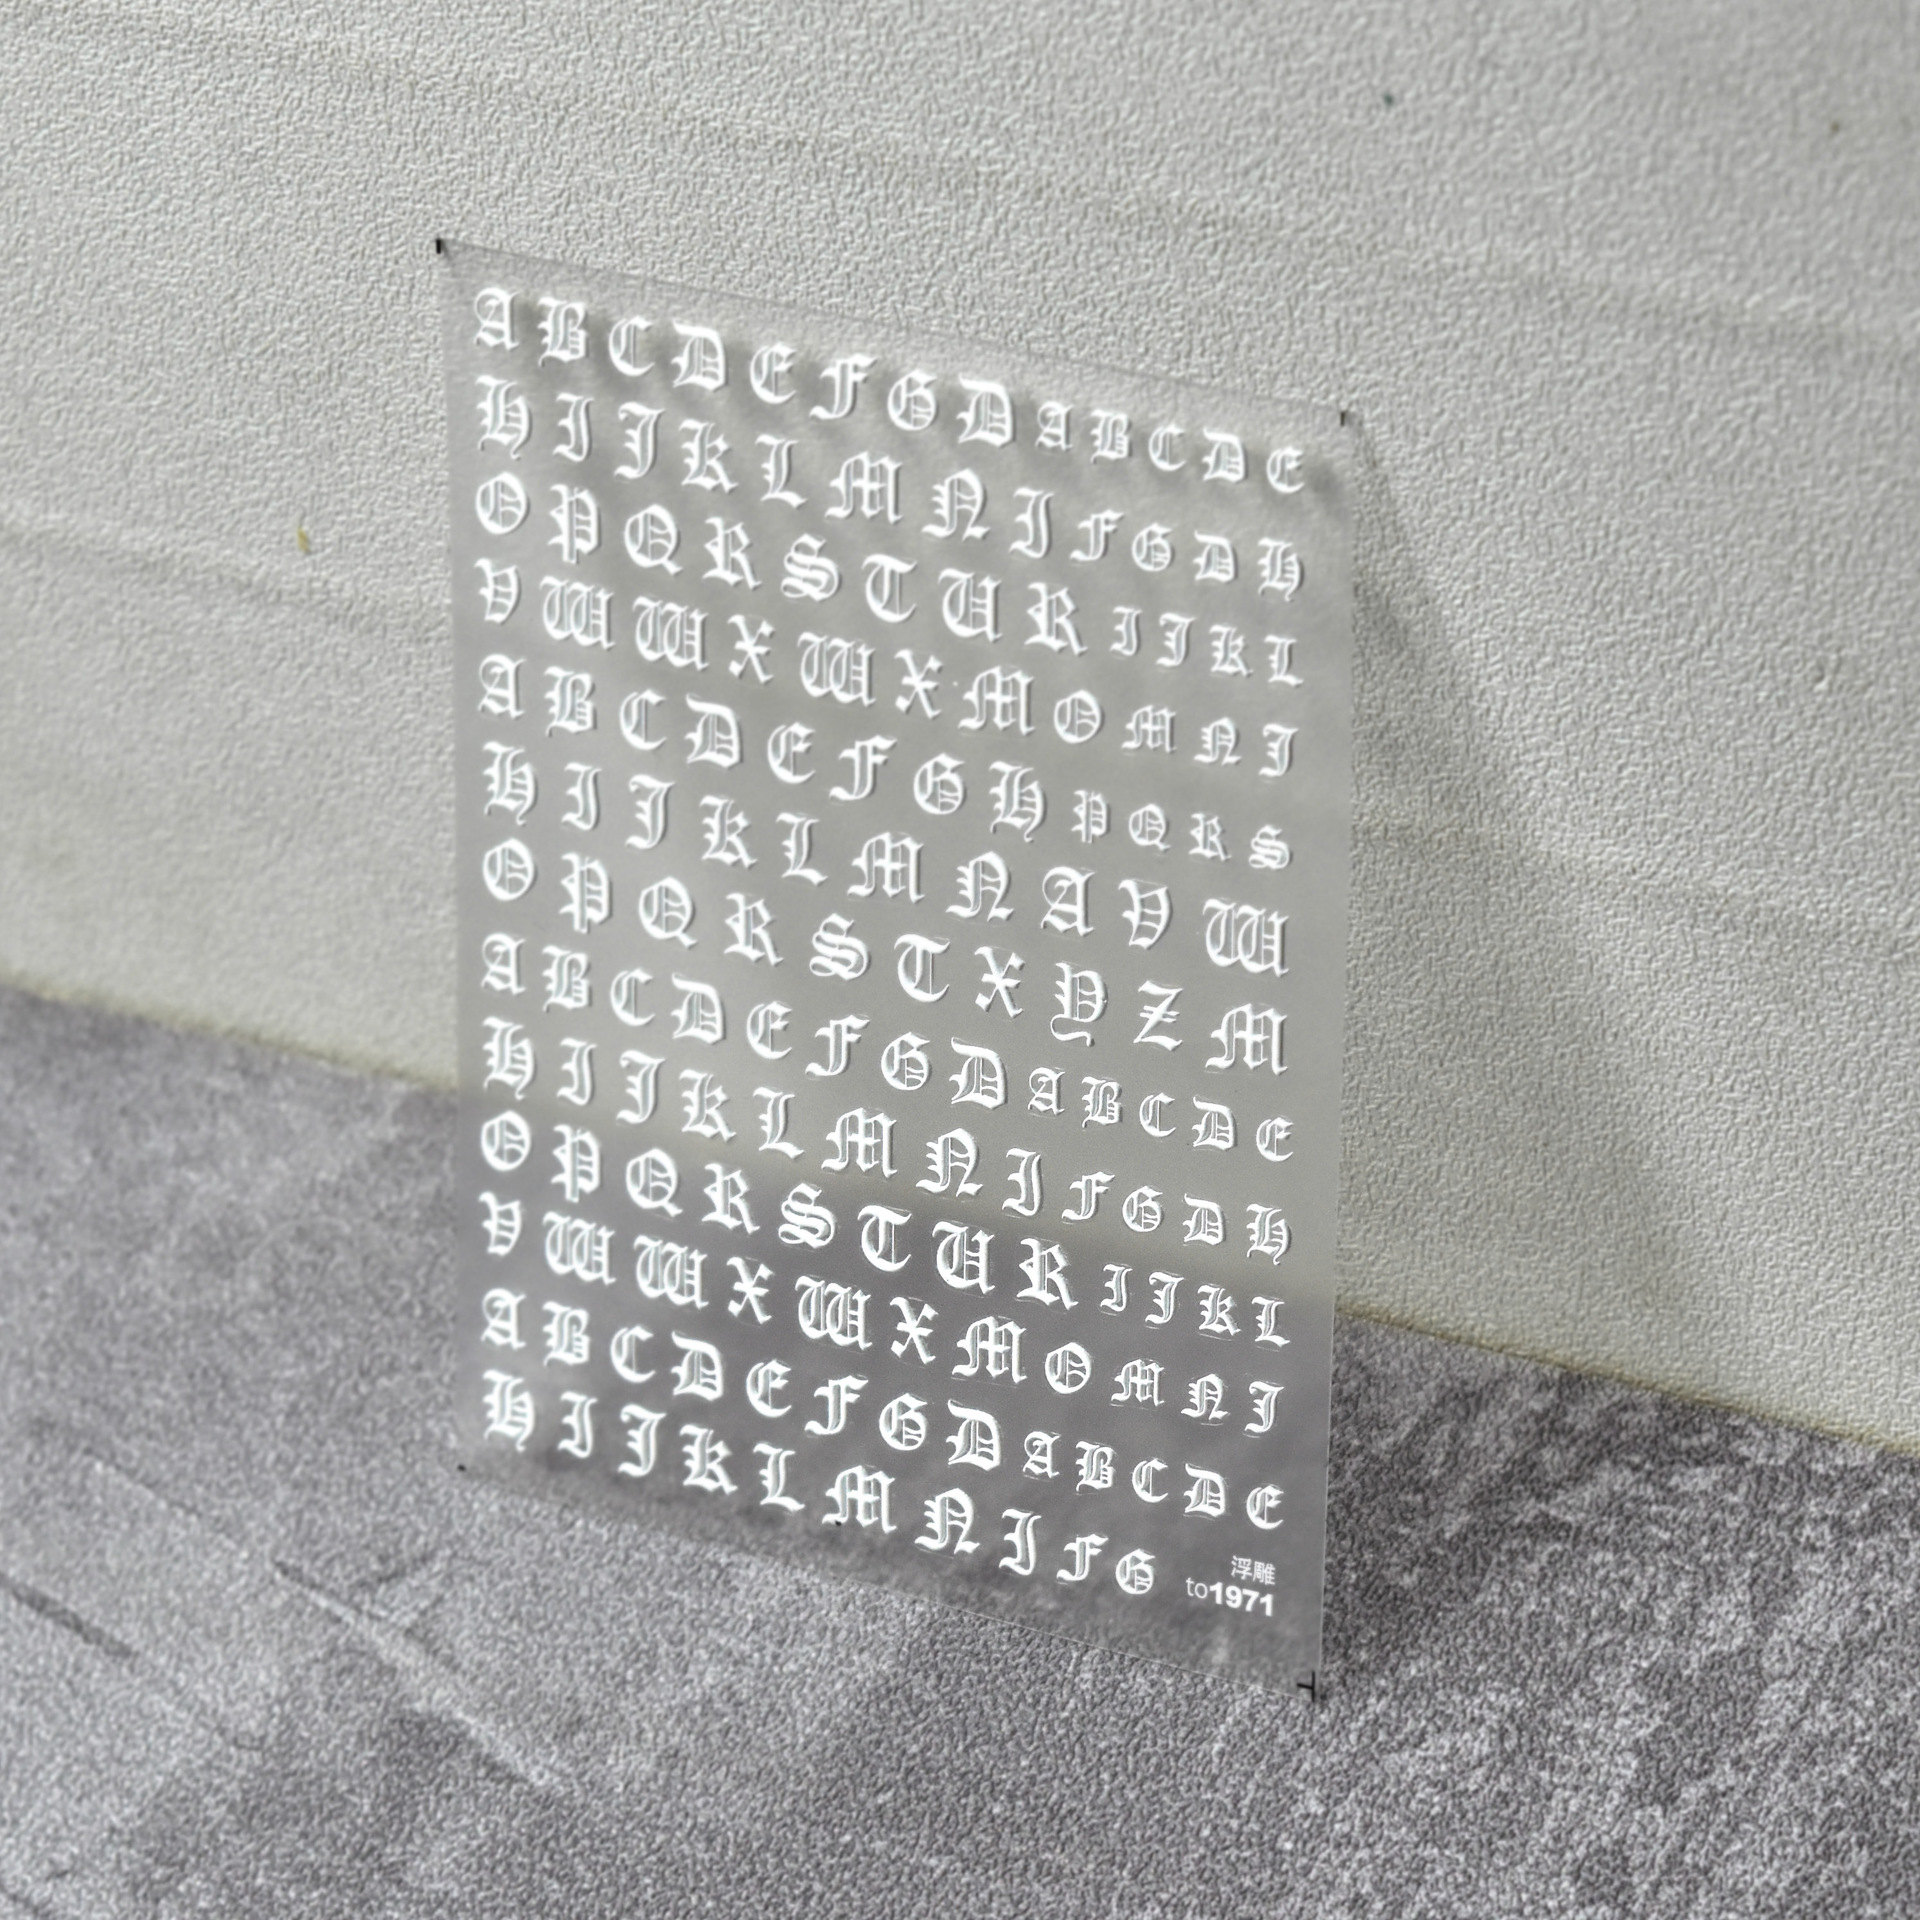 A B C D E F G D A B C D E
H I J K L M N I F G D H
O P Q R S T U R I J K L
V W W X W X M O M N J
A B C D E F G H P Q R S
H I J K L M N A V W
O P Q R S T X Y Z M
A B C D E F G D A B C D E
H I J K L M N I F G D H
O P Q R S T U R I J K L
V W W X W X M O M N J
A B C D E F G D A B C D E
H I J K L M N I F G
浮雕
to1971